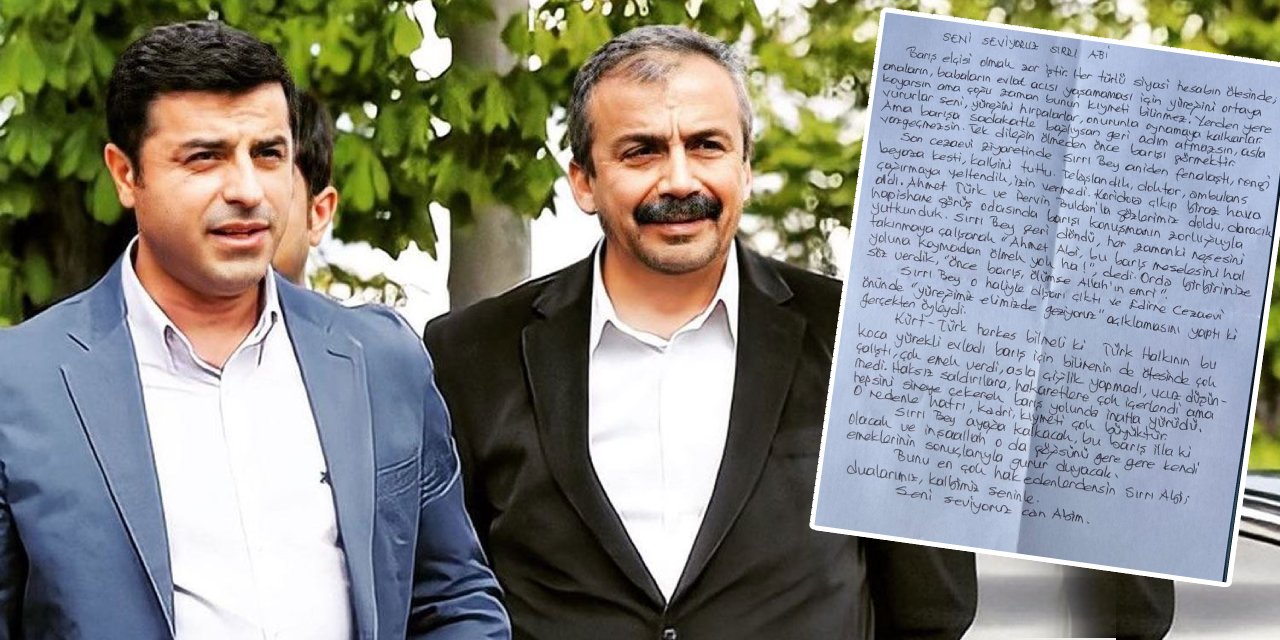 SENİ SEVİYORUZ SIRRI ABİ
Barış elçisi olmak zor iştir. Her türlü siyasi hesabın ötesinde,
anaların, babaların evlad acısı yaşamaması için yüreğini ortaya
koyarsın ama çoğu zaman bunun kıymeti bilinmez. Yerden yere
vururlar seni, yüreğini hırpalarlar, onurunla oynamaya kalkarlar.
Ama barışa sadakatle bağlıysan geri adım atmazsın, asla
vazgeçmezsin. Tek dileğin ölmeden önce barışı görmektir.
Son cezaevi ziyaretinde Sırrı Bey aniden fenalaştı, rengi
beyaza kesti, kalbini tuttu. Telaşlandık, doktor, ambulans
çağırmaya yeltendik, izin vermedi. Koridora çıkıp biraz hava
aldı. Ahmet Türk ve Pervin Buldan'la gözlerimiz doldu, daracık
hapishane görüş odasında barışı konuşmanın zorluğuyla
yutkunduk. Sırrı Bey geri döndü, her zamanki neşesini
takınmaya çalışarak "Ahmet Abi, bu barış meselesini hal
yoluna koymadan ölmek yok ha!", dedi. Orda birbirimize
söz verdik, "Önce barış, ölümse Allah'ın emri".
Sırrı Bey o haliyle dışarı çıktı ve Edirne Cezaevi
önünde "yüreğimiz elimizde geziyoruz" açıklamasını yaptı ki
gerçekten öyleydi.
Kürt-Türk herkes bilmeli ki Türk Halkının bu
koca yürekli evladı barış için bilinenin de ötesinde çok
çalıştı, çok emek verdi, asla çiğlik yapmadı, ucuz düşün-
medi. Haksız saldırılara, hakaretlere çok içerlendi ama
hepsini sineye çekerek barış yolunda inatla yürüdü.
O nedenle hatrı, kadri, kıymeti çok büyüktür.
Sırrı Bey ayağa kalkacak, bu barış illa ki
olacak ve inşaallah o da göğsünü gere gere kendi
emeklerinin sonuçlarıyla gurur duyacak.
Bunu en çok hak edenlerdensin Sırrı Abi,
dualarımız, kalbimiz seninle.
Seni seviyoruz can Abim.